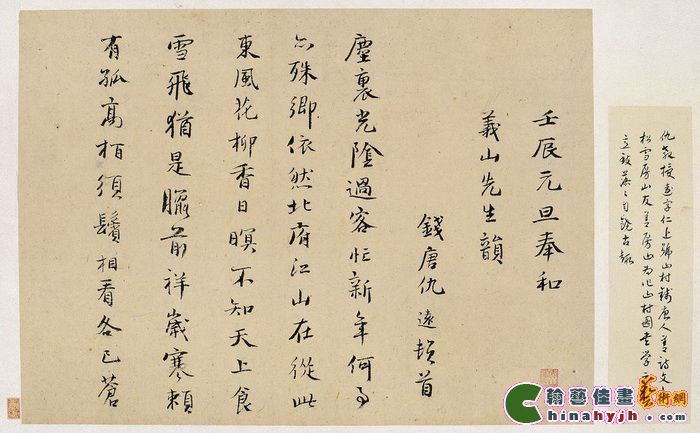 壬辰元旦奉和
義山先生韻
錢唐仇遠頓首
塵裏光陰過客忙新年何事
亦殊鄉依然北府江山在從此
東風花柳香日暝不知天上食
雪飛猶是臘前祥歲寒賴
有孤高柏須鬢相看各已蒼
仇教授遠字仁近號山村錢唐人善詩文
松雪房山友善房山為作山村圖書學
自饒古趣
翰藝佳畫 藝術網
Chinahyjh.com